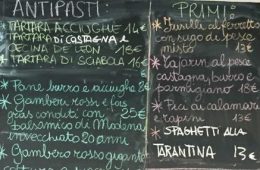 ANTIPASTI:
TARTARA ACCIUGHE 14€
TARTARA DI CASTAGNA e
DECINA DE LEON 18€
TARTARA DI SCIABOLA 16€
Pane burro e acciughe 8€
Gamberi rossi e fois
gras conditi con 25€
Balsamico di Modena
invecchiato 20 anni
Gambero rosso gigante
PRIMI:
con sugo di pesce
misto 13€
Tajarin al pesce
castagna, burro e
parmigiano 18€
Pici ai calamari
e tapini 13€
SPAGHETTI ALLA
TARANTINA 13€